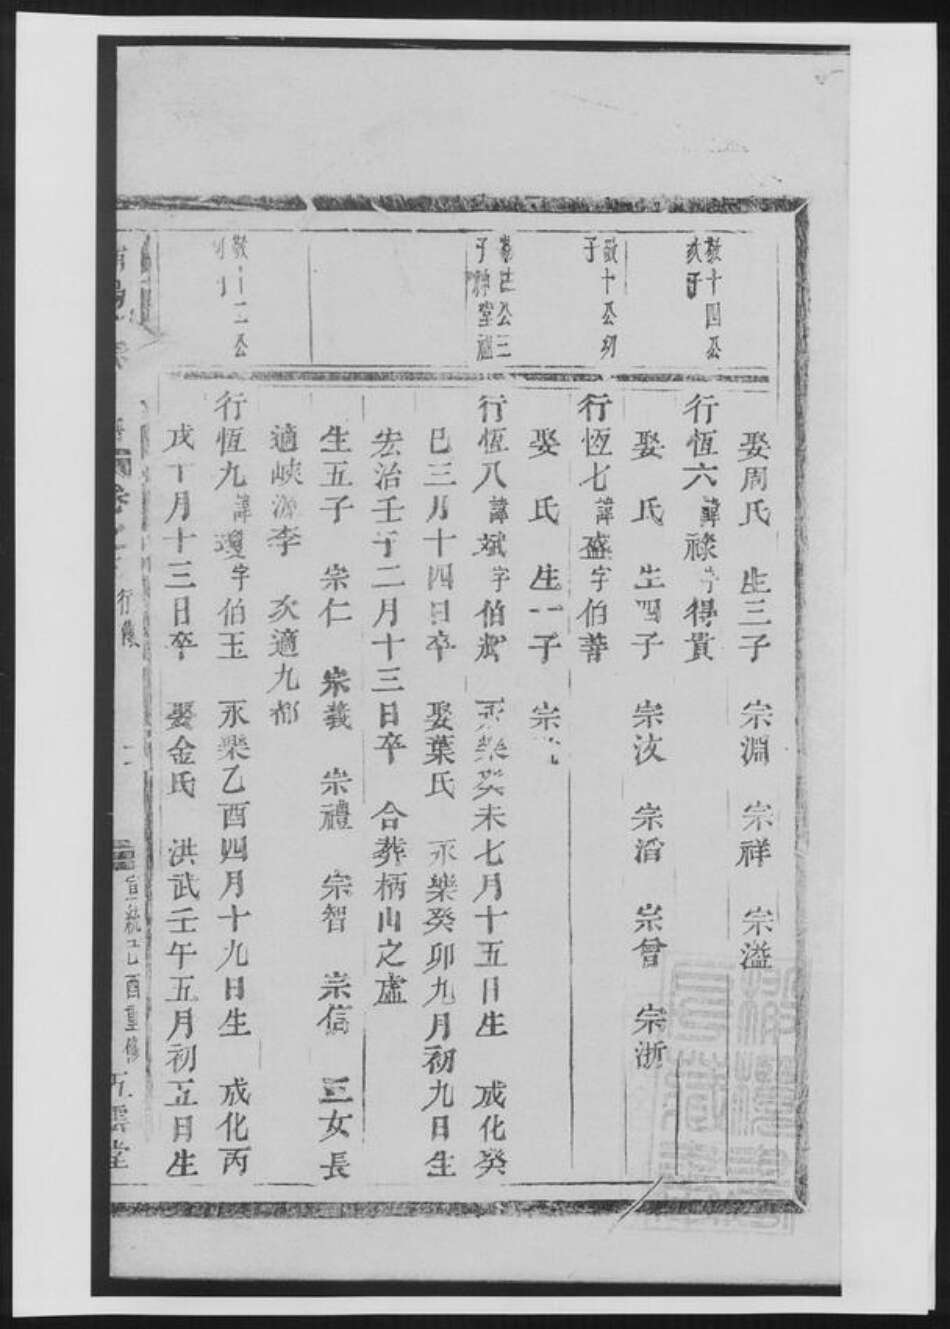 娶周氏 生三子 宗淵 宗祥 宗溢
敬十四公
次子
行恆六諱祿字得貴
娶 氏 生四子 宗汶 宗滔 宗曾 宗浙
敬十公初
子
行恆七諱盛字伯善
娶 氏 生一子 宗
公三
子神堂祖
行恆八諱斌字伯 永樂癸未七月十五日生 成化癸
巳三月十四日卒 娶葉氏 永樂癸卯九月初九日生
宏治壬子二月十三日卒 合葬柄山之虛
生五子 宗仁 宗義 宗禮 宗智 宗信 三女長
適峽源李 次適九都
敬十二公
行恆九諱瓊字伯玉 永樂乙酉四月十九日生 成化丙
戌丁月十三日卒 娶金氏 洪武壬午五月初五日生
行恆
宣統己酉重修
五雲堂